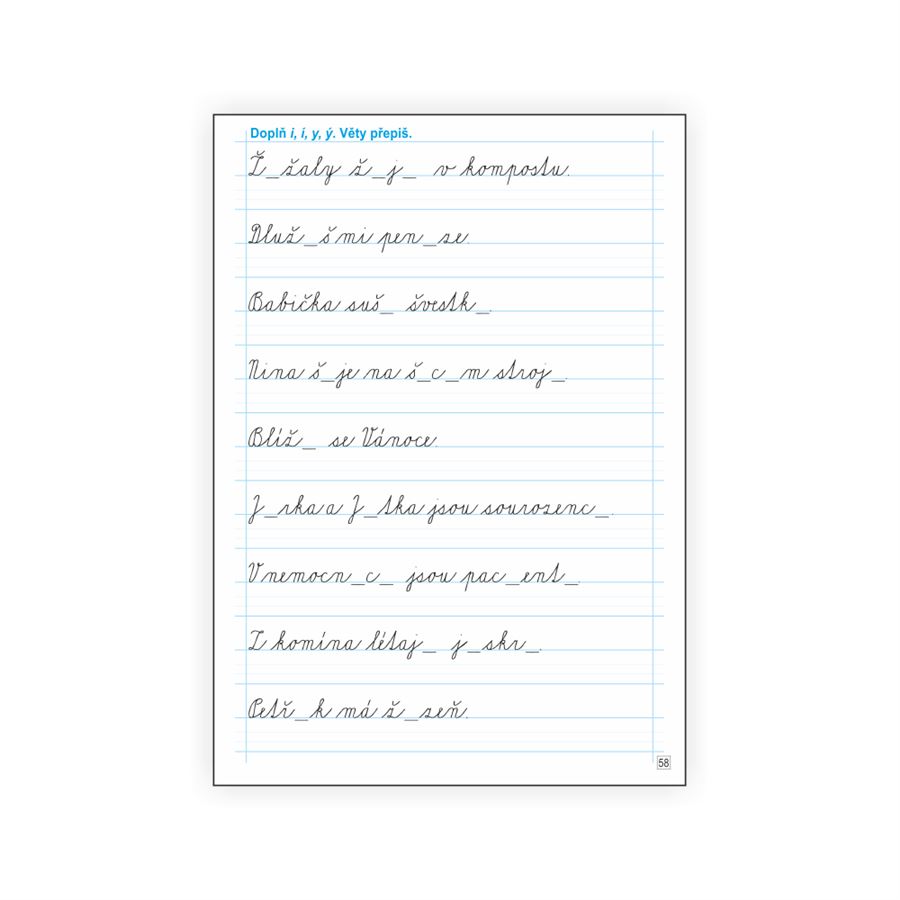 Doplň i, í, y, ý. Věty přepiš.
Ž_žaly ž_j_ v kompostu.
Dluž_š mi pen_ze.
Babička suš_ švestk_.
Nina š_je na š_c_m stroj_.
Blíž_ se Vánoce.
J_rka a J_tka jsou sourozenc_.
V nemocn_c_ jsou pac_ent_.
Z komína létaj_ j_skr_.
Petř_k má ž_zeň.
58